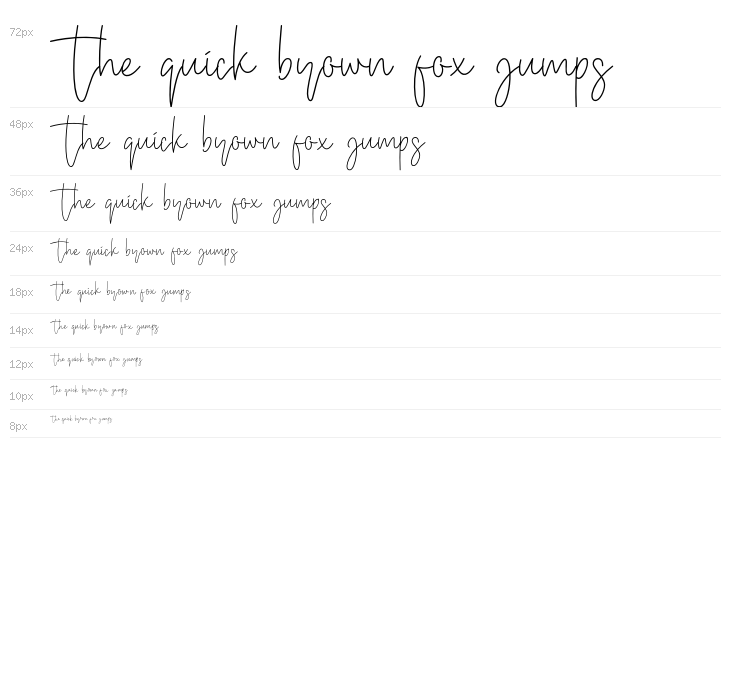 72px the quick brown fox jumps
48px the quick brown fox jumps
36px the quick brown fox jumps
24px the quick brown fox jumps
18px the quick brown fox jumps
14px the quick brown fox jumps
12px the quick brown fox jumps
10px the quick brown fox jumps
8px the quick brown fox jumps